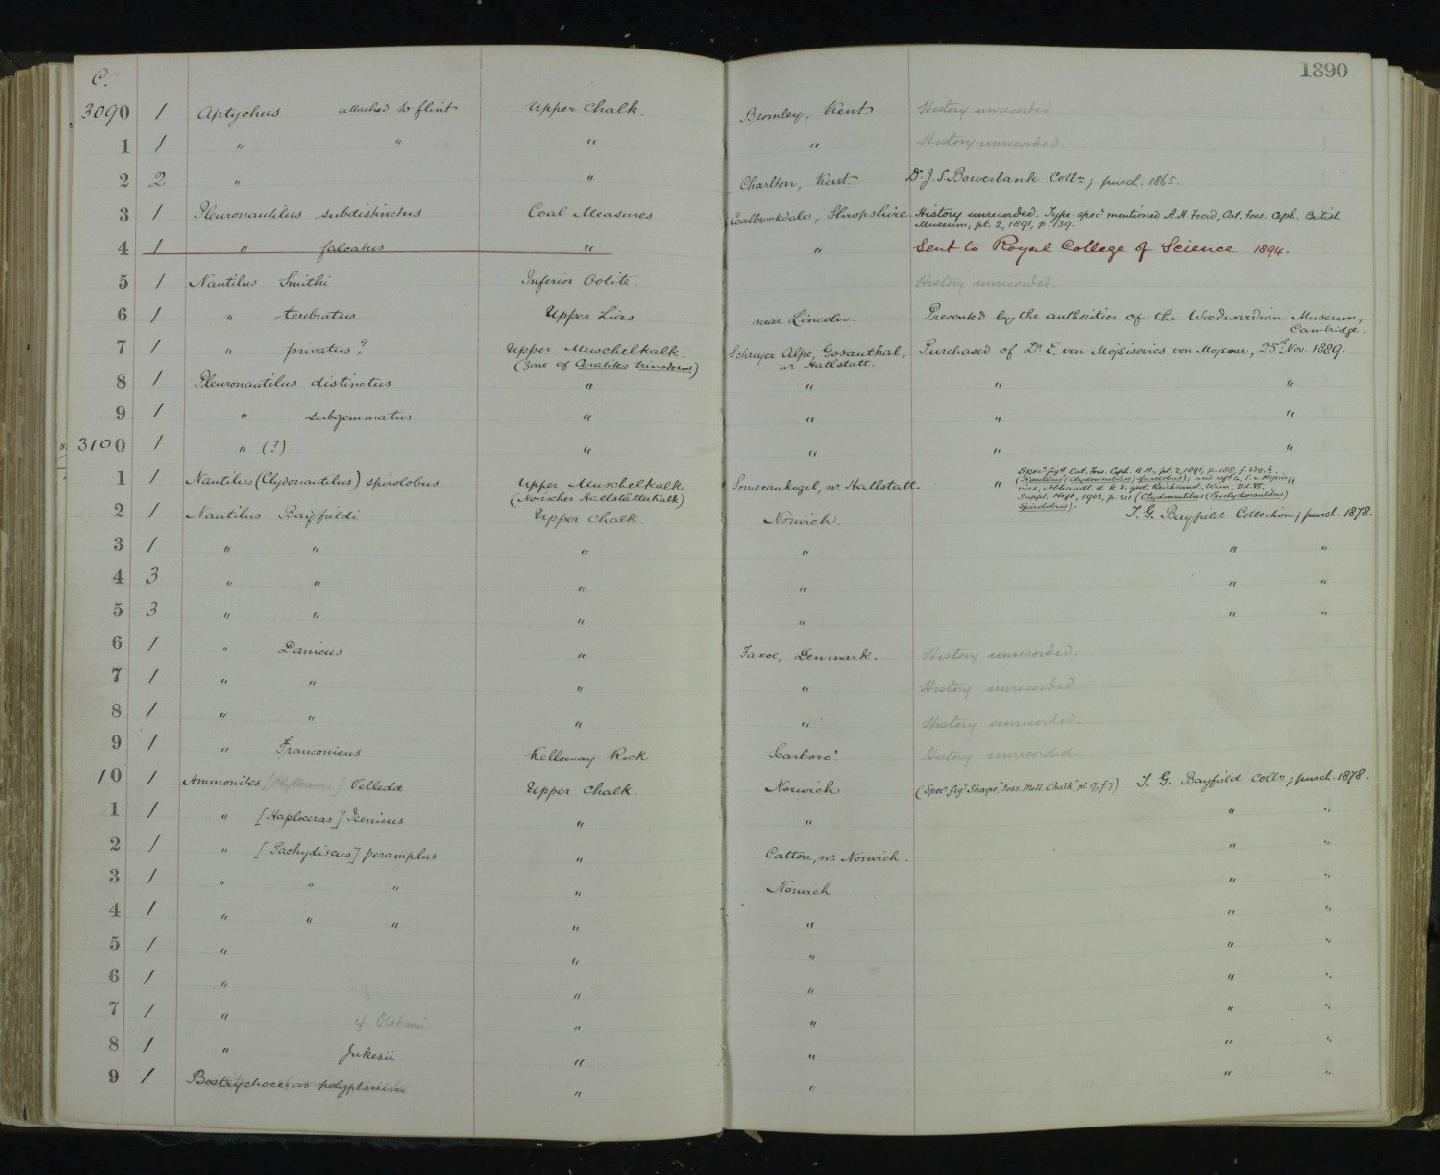 C. 1890
3090 1 Aptychus attached to flint Upper Chalk. Bromley, Kent History unrecorded
1 1 " " " " History unrecorded.
2 2 " " Charlton, Kent Dr. J. S. Bowerbank Colln; purch. 1865.
3 1 Pleuronautilus subdistinctus Coal Measures Coalbrookdale, Shropshire. History unrecorded. Type specn mentioned A. H. Foord, Cat. Foss. Ceph. British
Museum, pt. 2, 1891, p 139.
4 1 " falcatus " " Sent to Royal College of Science 1894.
5 1 Nautilus Smithi Inferior Oolite. History unrecorded.
6 1 " terebratus Upper Lias near Lincoln. Presented by the authorities of the Woodwardian Museum,
Cambridge.
7 1 " privatus? Upper Muschelkalk. Schreyer Alpe, Gosauthal, Purchased of Dr. E. von Mojsisovics von Mojsvar, 25th Nov. 1889.
(Zone of Ceratites trinodosus) nr Hallstatt.
8 1 Pleuronautilus distinctus " " " "
9 1 " subgemmatus " " " "
3100 1 " (?) " " " "
1 1 Nautilus (Clydonautilus) spirolobus Upper Muschelkalk. Someraukogel, nr. Hallstatt. " "
(Norischer Hallstätterkalk)
Specn figd Cat. Foss. Ceph. B.M., pt. 2, 1891, p. 188,
(Nautilus (Clydonautilus) spirolobus); and
Suppl. Heft, 1902, p. 211 (Clydonautilus
spirolobus).
2 1 Nautilus Bayfieldi Upper Chalk Norwich. T. G. Bayfield Collection; purch. 1878.
3 1 " " " " " "
4 3 " " " " " "
5 3 " " " " " "
6 1 " Danicus " Faxoe, Denmark. History unrecorded.
7 1 " " " " History unrecorded
8 1 " " " " History unrecorded.
9 1 " Franconicus Kelloway Rock Scarboro' History unrecorded.
10 1 Ammonites Velledæ Upper Chalk. Norwich (Specn figd Sharpe, Foss. Moll. Chalk, pl. 17, f. 7) T. G. Bayfield Colln; purch. 1878.
1 1 " [Haploceras] Icenicus " " " "
2 1 " [Pachydiscus] peramplus " Catton, nr. Norwich. " "
3 1 " " " " Norwich " "
4 1 " " " " " " "
5 1 " " " " "
6 1 " " " " "
7 1 " cf. Oldhami " " " "
8 1 " Jukesii " " " "
9 1 Bostrychoceras polyplocum " " " "